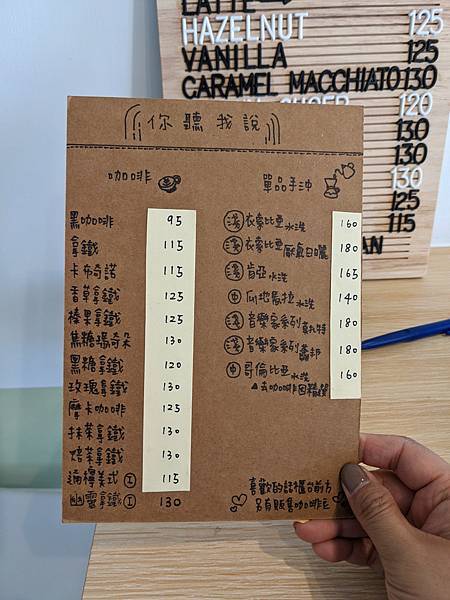 LATTE
HAZELNUT 125
VANILLA 125
CARAMEL MACCHIATO 130
120
130
130
130
125
115
你聽我說
咖啡
黑咖啡 95
拿鐵 115
卡布奇諾 115
香草拿鐵 125
榛果拿鐵 125
焦糖瑪奇朵 130
黑糖拿鐵 120
玫瑰拿鐵 130
摩卡咖啡 125
抹茶拿鐵 130
焙茶拿鐵 130
檸檬美式 I 115
幽靈拿鐵 I 130
單品手沖
淺 衣索比亞 水洗 160
淺 衣索比亞 厭氧日曬 180
淺 肯亞 水洗 165
中 瓜地馬拉 水洗 140
淺 音樂家系列 莫札特 180
淺 音樂家系列 蕭邦 180
中 哥倫比亞 水洗 160
▲去咖啡因精選
喜歡的話櫃台前方
另有販售咖啡豆